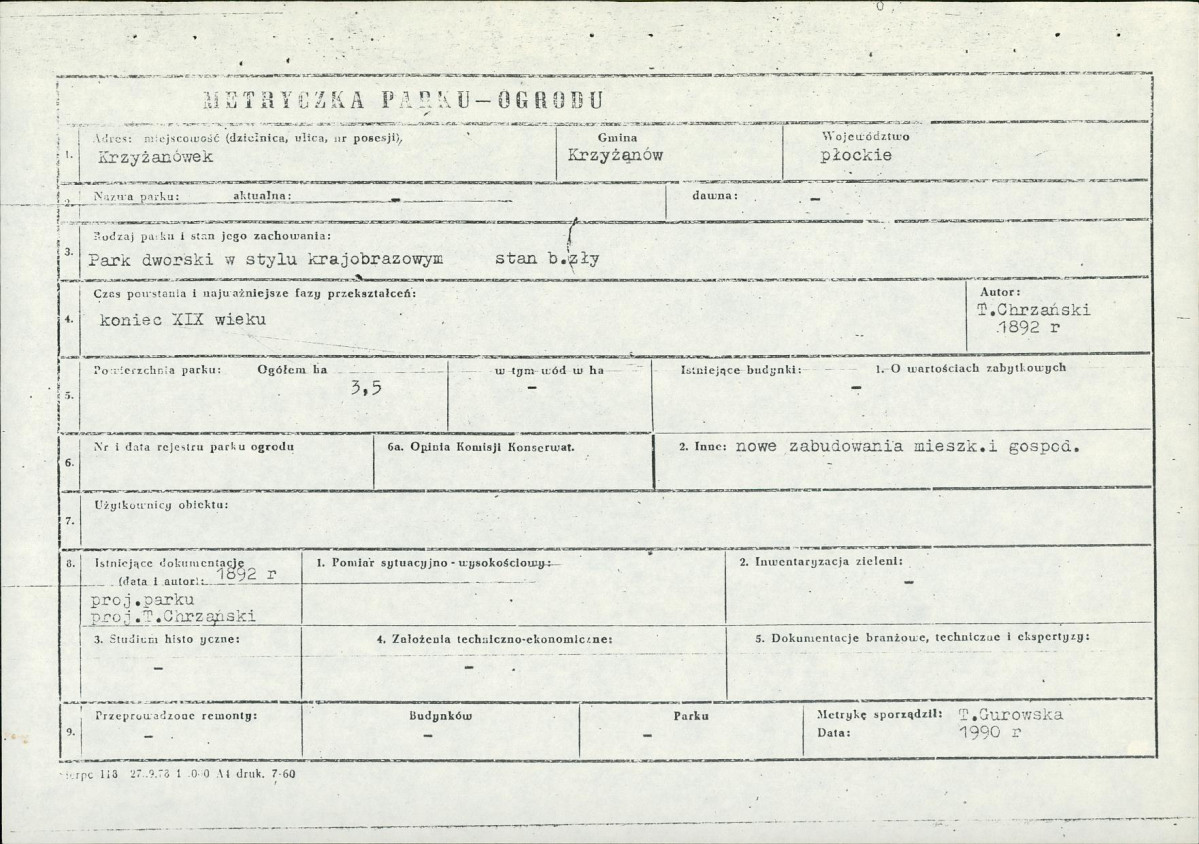 METRYCZKA PARKU-OGRODU
1. Adres: miejscowość (dzielnica, ulica, nr posesji) Gmina Województwo
Krzyżanówek Krzyżąnów płockie
2. Nazwa parku: aktualna: - dawna: -
Rodzaj parku i stan jego zachowania:
3. Park dworski w stylu krajobrazowym stan b.zły
Czas powstania i najważniejsze fazy przekształceń: Autor:
4. koniec XIX wieku T.Chrzański
1892 r
Powierzchnia parku: Ogółem ha w tym wód w ha Istniejące budynki: 1. O wartościach zabytkowych
5. 3,5 - -
6. Nr i data rejestru parku ogrodu 6a. Opinia Komisji Konserwat. 2. Inne: nowe zabudowania mieszk.i gospod.
7. Użytkownicy obiektu:
8. Istniejące dokumentacje 1. Pomiar sytuacyjno-wysokościowy: 2. Inwentaryzacja zieleni:
(data i autor): 1892 r -
proj.parku
proj.T.Chrząński
3. Studium histo yczne: 4. Założenia techniczno-ekonomiczne: 5. Dokumentacje branżowe, techniczne i ekspertyzy:
- -
Przeprowadzone remonty: Budynków Parku Metrykę sporządził: T.Gurowska
9. - - - Data: 1990 r
A4 druk. 7-60